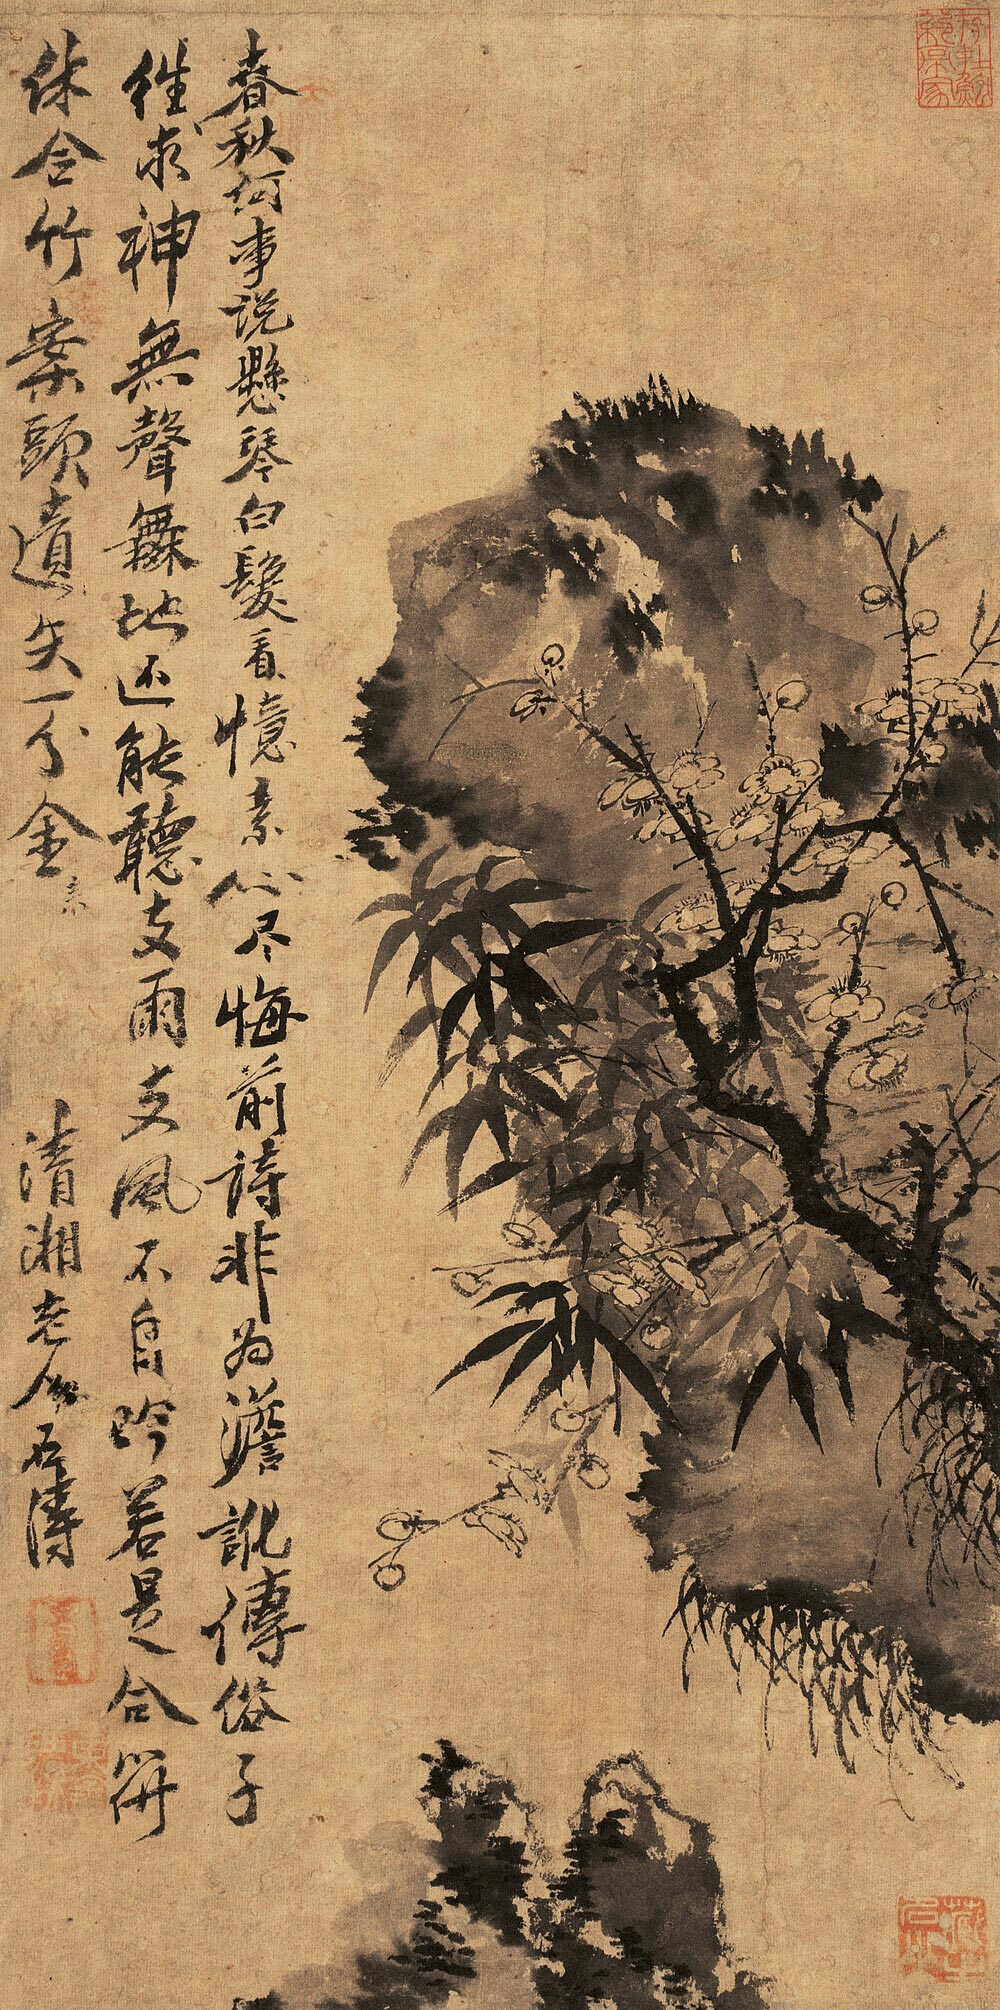 春秋何事说懸琴白髮看憶素心尽悔前詩非为澹訛傳俗子
继求神無聲舞地还能聽支雨支風不自吟若是合併
休令竹案頭遺失一分金
清湘老人
石濤